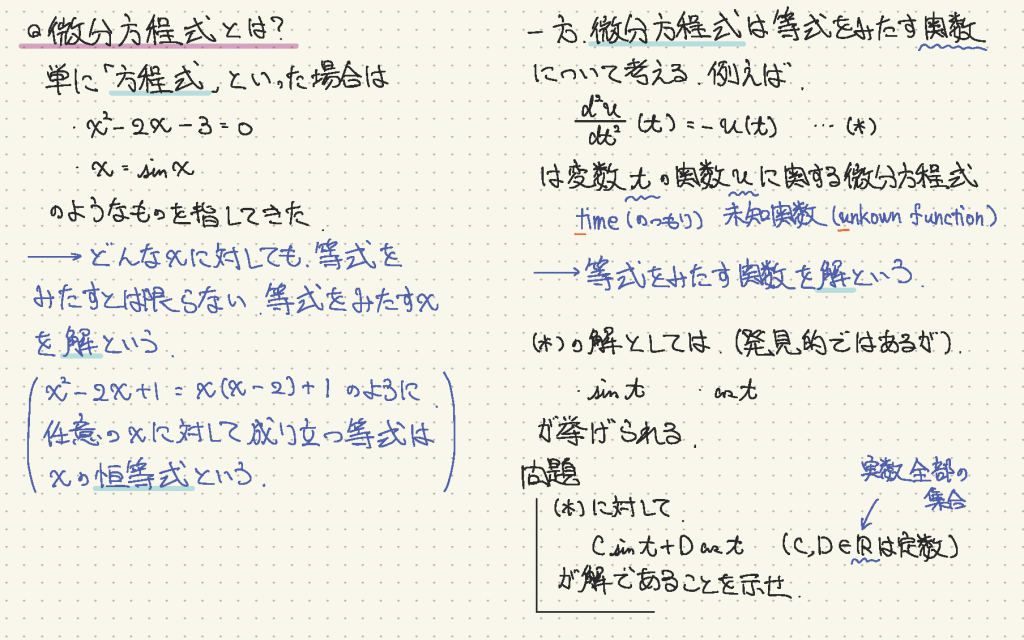 微分方程式とは?
単に「方程式」といった場合は
・x²-2x-3=0
・x=sin x
のようなものを指してきた.
→どんなxに対しても,等式を
みたすとは限らない.等式をみたすx
を解という.
(x²-2x+1=x(x-2)+1のように,
任意のxに対して成り立つ等式は
xの恒等式という.)
一方,微分方程式は等式をみたす関数
について考える.例えば,
d²u/dt² (t) = -u(t) … (*)
は変数tの関数uに関する微分方程式
time(のつもり) 未知関数(unkown function)
→等式をみたす関数を解という.
(*)の解としては,(発見的ではあるが),
・sin t ・cos t
が挙げられる.
問題
実数全部の
集合
(*)に対して,
C sin t + D cos t (C, D∈ℝは定数)
が解であることを示せ.